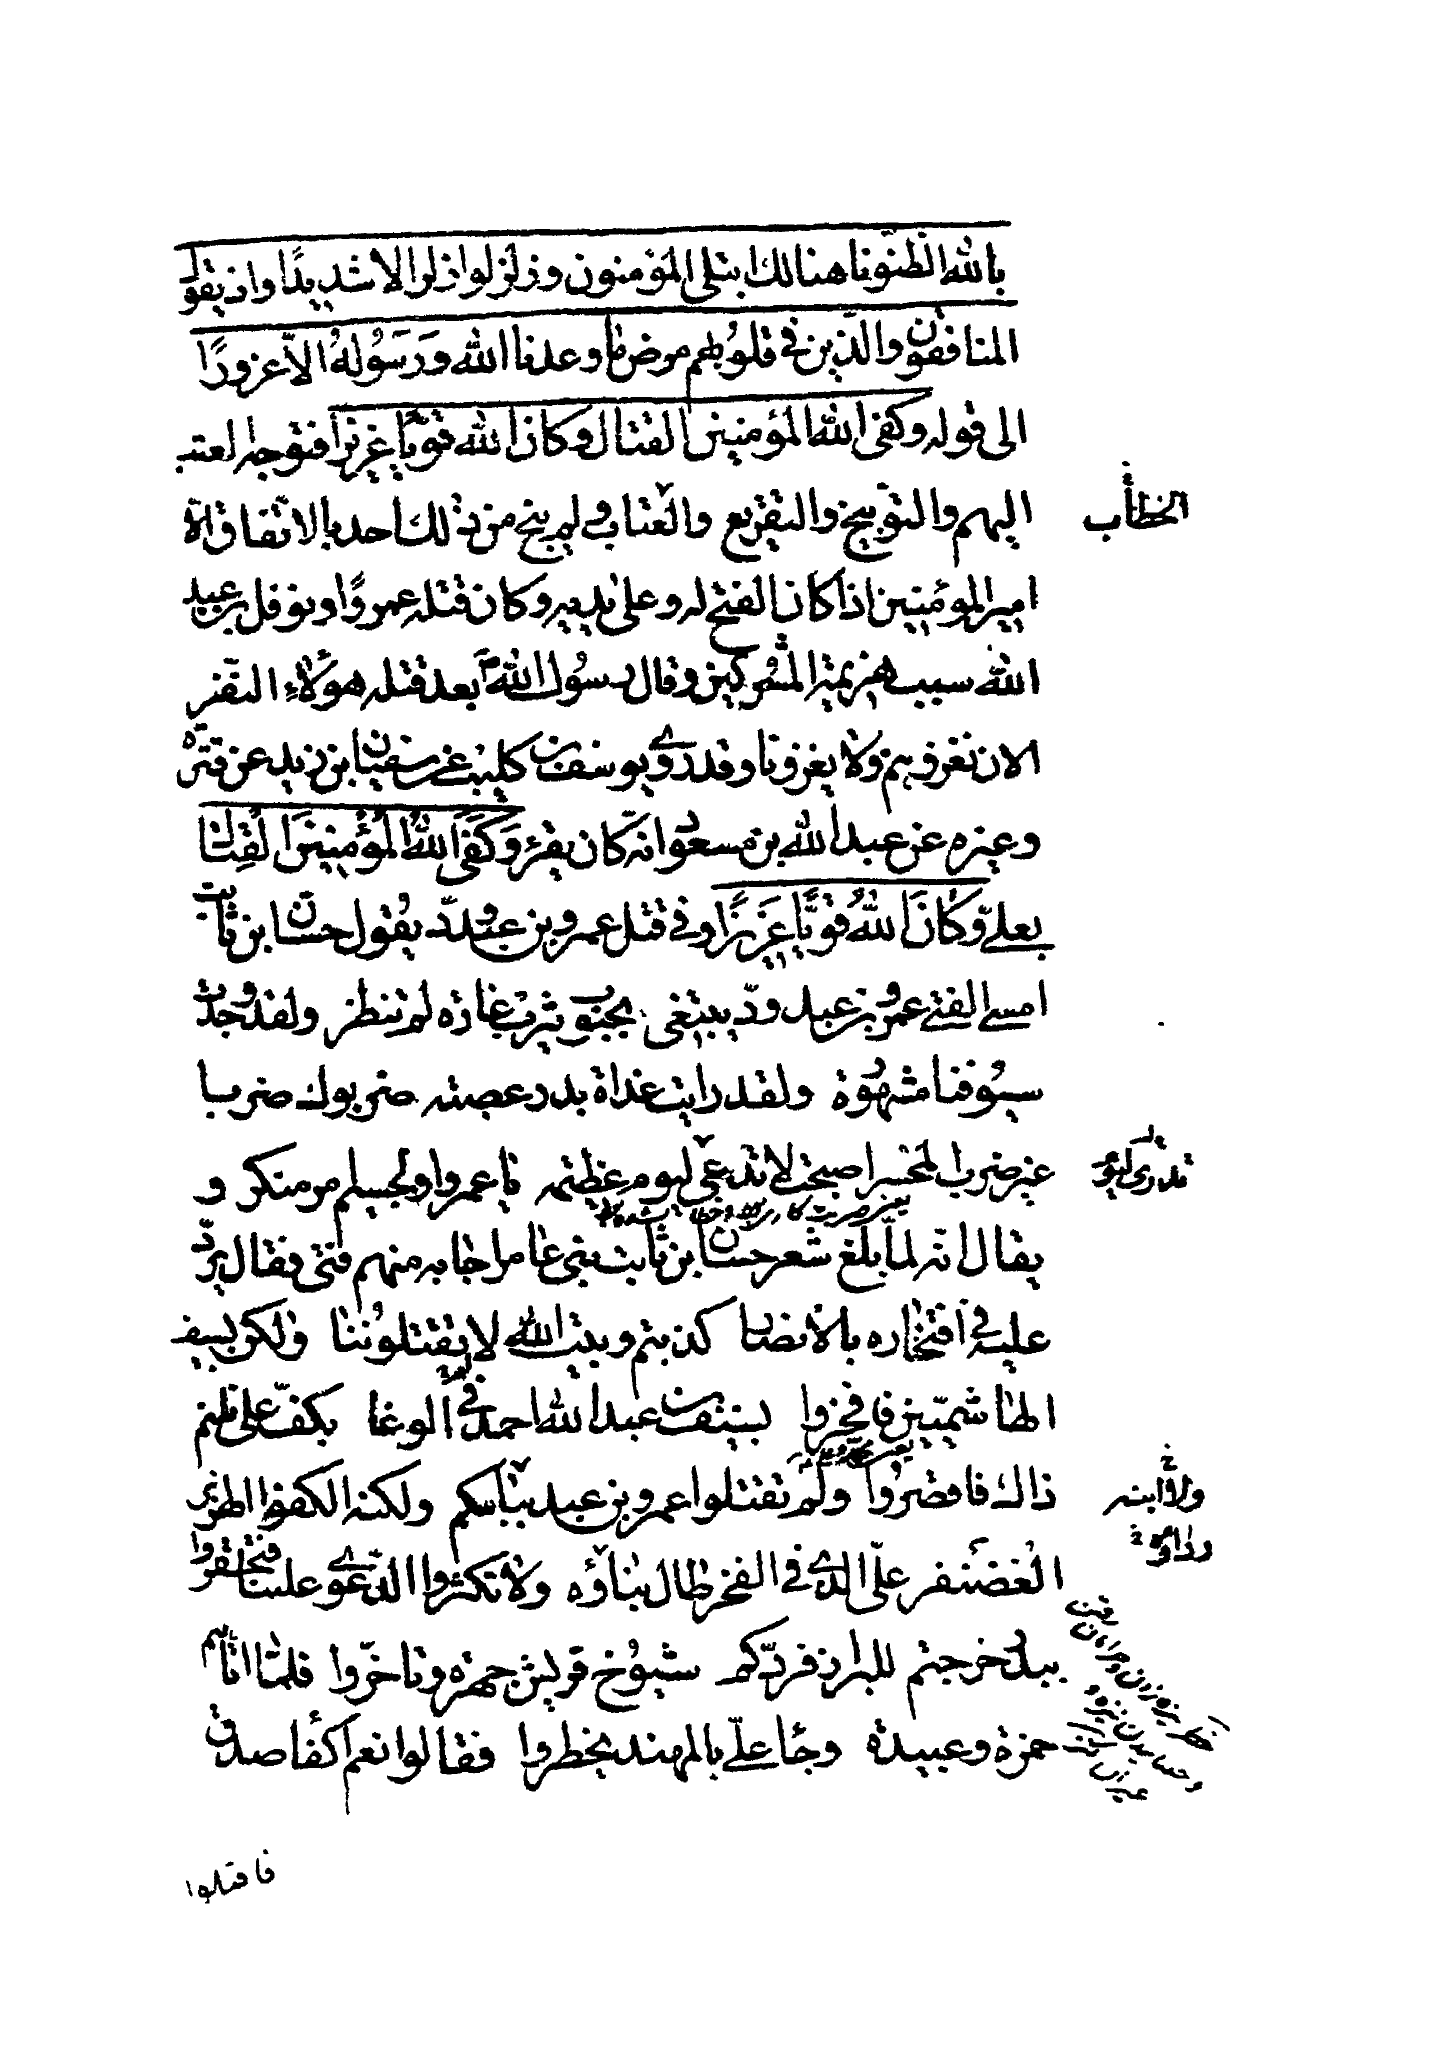 بالله الظنونا هنالك ابتلى المؤمنون وزلزلوا زلزالا شديدًا واذ يقول
المنافقون والذين في قلوبهم مرض ما وعدنا الله ورسوله الاّ غرورًا
الى قوله وكفى الله المؤمنين القتال وكان الله قويًّا عزيزًا فتوجه العتب
اليهم والتوبيخ والتقريع والعتاب ولم ينج من ذلك احد بالاتفاق الاّ
الخطاب
امير المؤمنين اذ كان الفتح له وعلى يديه وكان قتله عمروًا ونوفل بن عبد
الله سبب هزيمة المشركين وقال رسول الله بعد قتله هؤلاء النفر
الان نغزوهم ولا يغزونا وقد روى يوسف بن كليب عن سفيان بن زيد عن قرة
وغيره عن عبد الله بن مسعود انه كان يقرء وكفى الله المؤمنين القتال
بعليّ وكان الله قويًّا عزيزًا وفي قتل عمرو بن عبد ودّ يقول حسان بن ثابت
امسى الفتى عمرو بن عبد ودّ يبتغى بجنوب يثرب غارة لم تنظر ولقد وجدت
سيوفنا مشهورة ولقد رايت غداة بدر عصبة ضربوك ضربا
غير ضرب المخسر اصبحت لا تدعى ليوم عظيمة يا عمرو او لجسيم امر منكر و
يقال انه لما بلغ شعر حسان بن ثابت بنى عامر اجابه منهم فتى فقال يردّ
عليه في افتخاره بالانصار كذبتم وبيت الله لا تقتلوننا ولكن بسيف
الهاشميّين فافخروا بسيف بن عبد الله احمد في الوغا بكفّ على نلتم
ذاك فاقصروا ولم تقتلوا عمرو بن عبد بباسكم ولكنه الكفو الهزبر
ولا ابنه
الغضنفر علّى الذي في الفخر طال بناؤه ولا تكثروا الدّعوى علينا فتحقروا
ببدر خرجتم للبراز فردّكم شيوخ قريش جهرة وتاخّروا فلما اتاهم
حمزة وعبيدة وجا علّي بالمهند يخطروا فقالوا نعم اكفا صدق
فاقبلوا